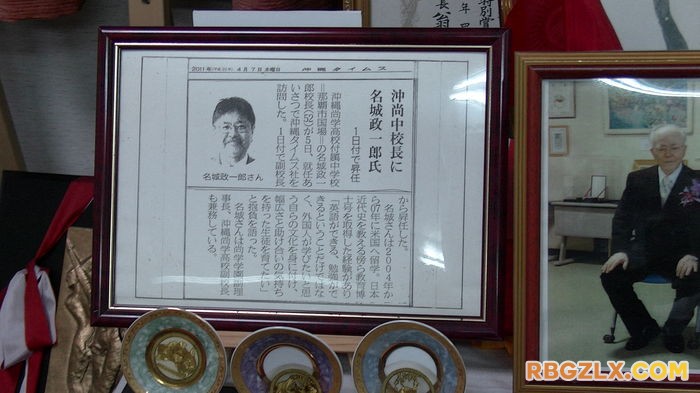 特別賞
2011年(平成23年)4月7日木曜日
沖縄タイムス
沖尚中校長に
名城政一郎氏
1日付で昇任
沖縄尚学高校付属中学校
=那覇市国場=の名城政一
郎校長(52)が5日、就任あ
いさつで沖縄タイムス社を
訪問した。1日付で副校長
名城政一郎さん
から昇任した。
名城さんは2004年か
ら07年に米国へ留学。日本
近代史を教える傍ら教育博
士号を取得した経験があり
「英語ができる、勉強がで
きるということだけではな
く、外国人が学びたいと思
う自らの文化を身に付け、
幅広さと助け合いの気持ち
を持った生徒を育てたい」
と抱負を語った。
名城さんは尚学学園副理
事長、沖縄尚学高校副校長
も兼務している。
RBGZLX.COM